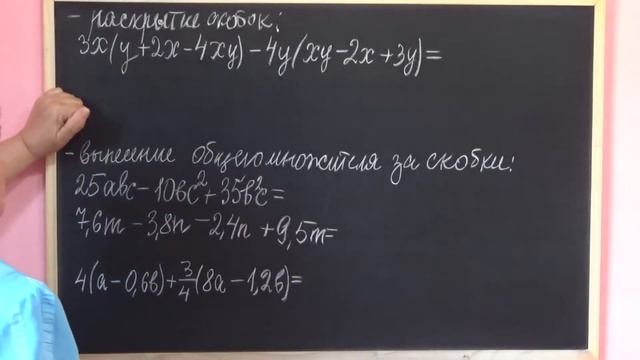 - раскрытие скобок:
3x(y+2x-4xy)-4y(xy-2x+3y)=
- вынесение общего множителя за скобки:
25abc-10bc²+35b³c=
7,6m-3,8n-2,4n+9,5m=
4(a-0,6b)+3/4(8a-1,2b)=